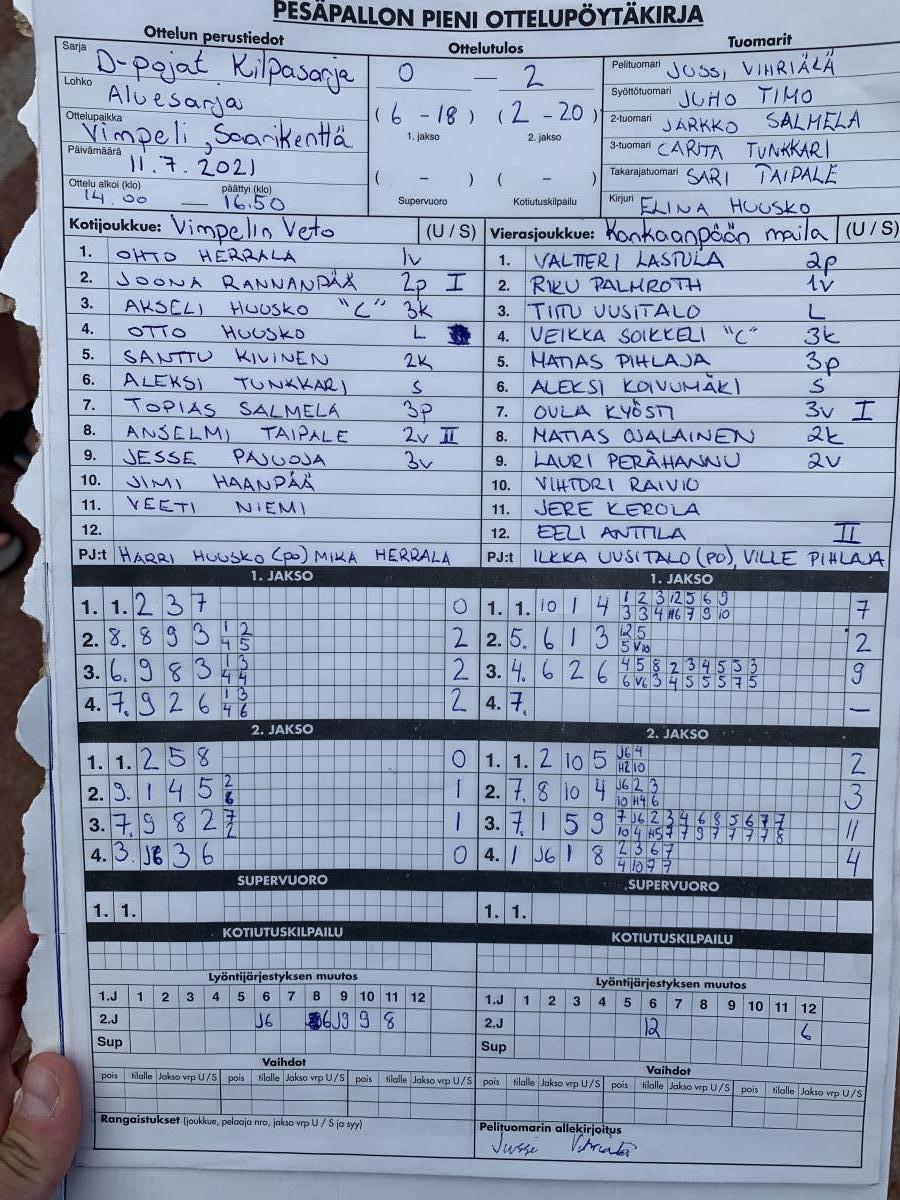 PESÄPALLON PIENI OTTELUPÖYTÄKIRJA
Ottelun perustiedot
Sarja D-pojat Kilpasarja
Lohko Aluesarja
Ottelupaikka Vimpeli, Saarikenttä
Päivämäärä 11.7.2021
Ottelu alkoi (klo) päättyi (klo)
14.00 — 16.50
Ottelutulos
0 — 2
(6 - 18) (2 - 20)
1. jakso 2. jakso
( - ) ( - )
Supervuoro Kotiutuskilpailu
Tuomarit
Pelituomari JUSSI VIHRIÄLÄ
Syöttötuomari JUHO TIMO
2-tuomari JARKKO SALMELA
3-tuomari CARITA TUNKKARI
Takarajatuomari SARI TAIPALE
Kirjuri ELINA HUUSKO
Kotijoukkue: Vimpelin Veto (U / S)
1. OHTO HERRALA 1v
2. JOONA RANNANPÄÄ 2p I
3. AKSELI HUUSKO "C" 3k
4. OTTO HUUSKO L
5. SANTTU KIVINEN 2k
6. ALEKSI TUNKKARI S
7. TOPIAS SALMELA 3p
8. ANSELMI TAIPALE 2v II
9. JESSE PAJUOJA 3v
10. JIMI HAANPÄÄ
11. VEETI NIEMI
12.
PJ:t HARRI HUUSKO (po) MIKA HERRALA
Vierasjoukkue: Kankaanpään maila (U / S)
1. VALTTERI LASTULA 2p
2. RIKU PALMROTH 1v
3. TIITU UUSITALO L
4. VEIKKA SOIKKELI "C" 3k
5. MATIAS PIHLAJA 3p
6. ALEKSI KOIVUMÄKI S
7. OULA KYÖSTI 3v I
8. MATIAS OJALAINEN 2k
9. LAURI PERÄHANNU 2v
10. VIHTORI RAIVIO
11. JERE KEROLA
12. EELI ANTTILA II
PJ:t ILKKA UUSITALO (PO), VILLE PIHLAJA
1. JAKSO
1. 1. 2 3 7 0
2. 8. 8 9 3 1 2 2
4 5
3. 6. 9 8 3 1 3 2
4 4
4. 7. 9 2 6 1 3 2
4 6
2. JAKSO
1. 1. 2 5 8 0
2. 9. 1 4 5 2 1
6
3. 7. 9 8 2 7 1
2
4. 3. J6 3 6 0
SUPERVUORO
1. 1.
KOTIUTUSKILPAILU
1. JAKSO
1. 1. 10 1 4 1 2 3 12 5 6 9 7
3 3 4 H6 7 9 10
2. 5. 6 1 3 12 5 2
5 V10
3. 4. 6 2 6 4 5 8 2 3 4 5 5 3 9
6 V6 3 4 5 5 5 7 5
4. 7. —
2. JAKSO
1. 1. 2 10 5 J6 4 2
H2 10
2. 7. 8 10 4 J6 2 3 3
10 H4 6
3. 7. 1 5 9 7 J6 2 3 4 6 8 5 6 7 7 11
10 4 H5 7 7 9 7 7 7 7 8
4. 1 J6 1 8 2 3 6 7 4
4 10 7 7
SUPERVUORO
1. 1.
KOTIUTUSKILPAILU
Lyöntijärjestyksen muutos
1.J 1 2 3 4 5 6 7 8 9 10 11 12
2.J J6 J9 9 8
Sup
Vaihdot
pois tilalle Jakso vrp U / S pois tilalle Jakso vrp U / S pois tilalle Jakso vrp U / S
Rangaistukset (joukkue, pelaaja nro, jakso vrp U / S ja syy)
Lyöntijärjestyksen muutos
1.J 1 2 3 4 5 6 7 8 9 10 11 12
2.J 12 6
Sup
Vaihdot
pois tilalle Jakso vrp U / S pois tilalle Jakso vrp U / S pois tilalle Jakso vrp U / S
Pelituomarin allekirjoitus
Jussi Vihriälä